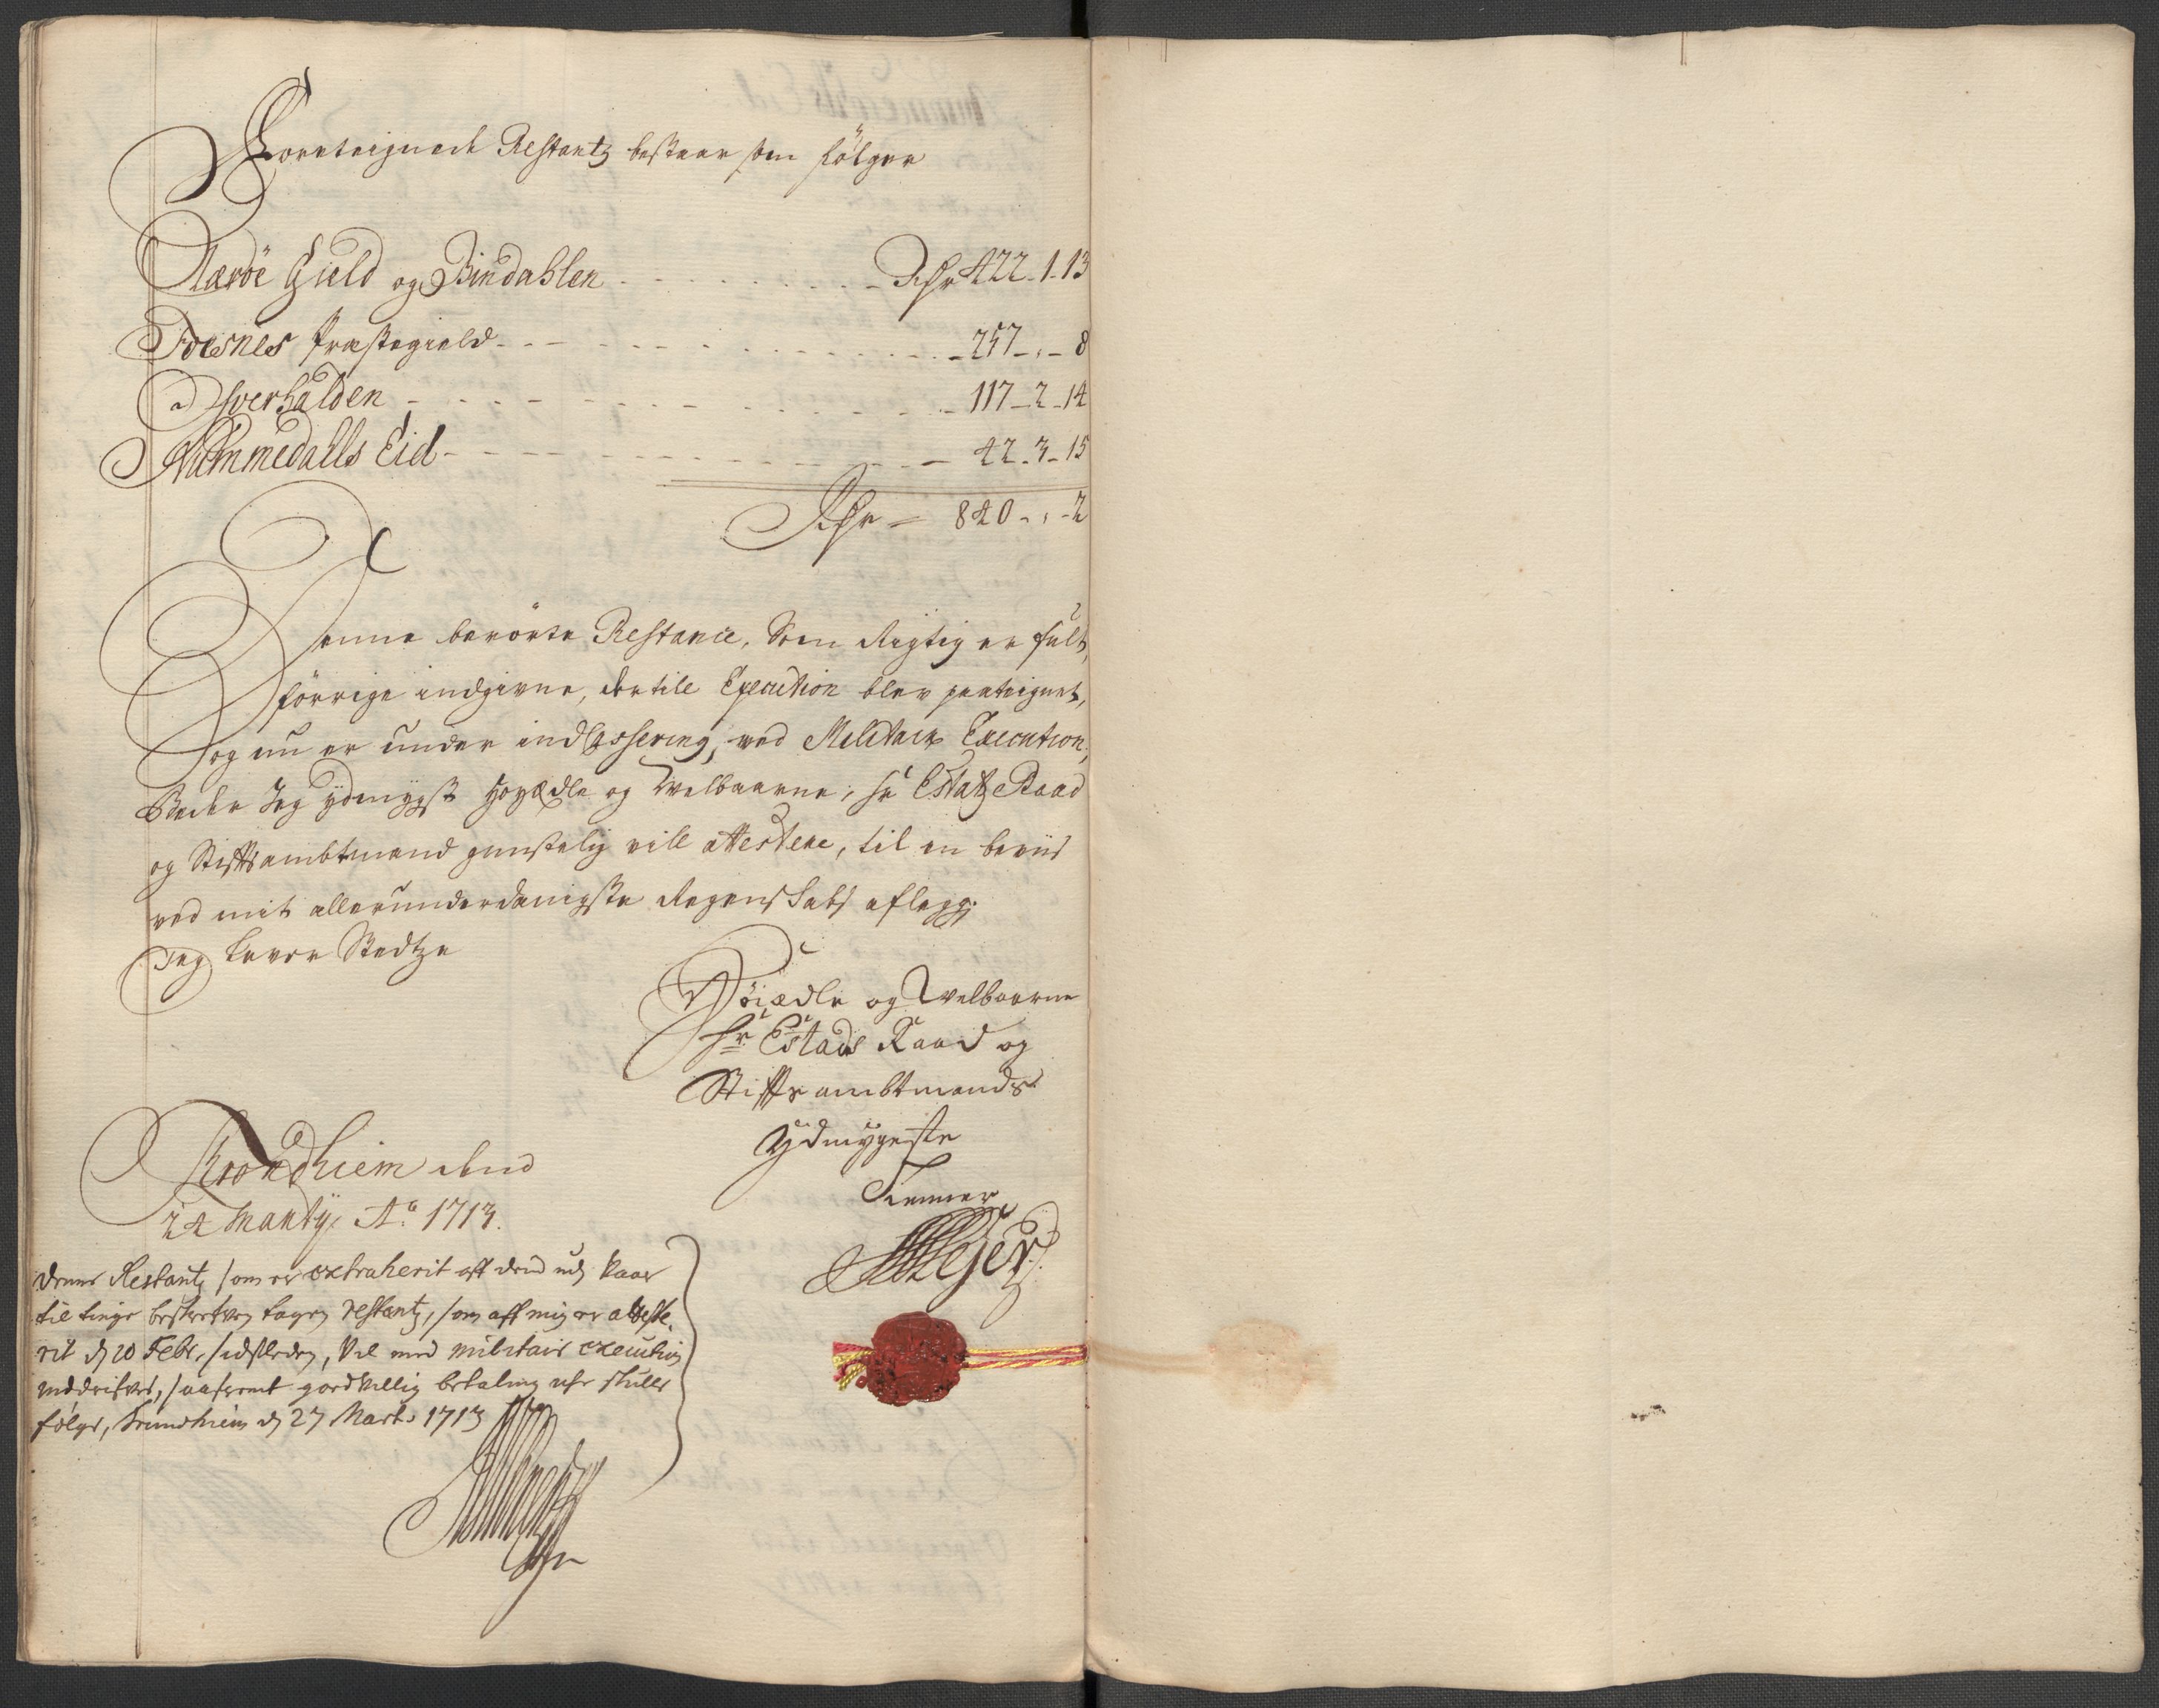 Foreteignede Restantz bestaar som fölger
Næröe Gield og Bindahlen - - - Rdr 422 - 1 - 13
Foesnes Præstegield - - - 257 - , - 8
Ofverhalden - - - 117 - 2 - 14
Nummedalls Eid - - - 42 - 3 - 15
Rdr = 840 - , - 2
Denne berörte Restance, Som Rigtig er
förrige indgivne, der till Execution blev paateignet,
og nu er under indCassering, ved Militair Execution,
Beder Jeg ydmygst HoyÆdle og Welbaarne, Hr Estatz Raad
og Stiftsambtmand gunstelig vill attestere, til en beviis
ved mit allerunderdanigste Regenskabs aflegg:
Jeg lever Stedtze
Höiædle og Welbaarne
Hr Estads Raad og
Stiftsambtmands
Ydmygeste
Tienner
Trondhiem dend
24 Marty, Ao 1713.
Denne Restantz som er extraherit aff dend udj Vaar
til tinge beskrefven tagen restantz, som aff mig er atteste-
rit d 20 Febr, sidstleden, Vel med militair execution
inddrifves, saafremt goedvillig betaling icke skulle
følge, Trundhiem d 27 Marti 1713